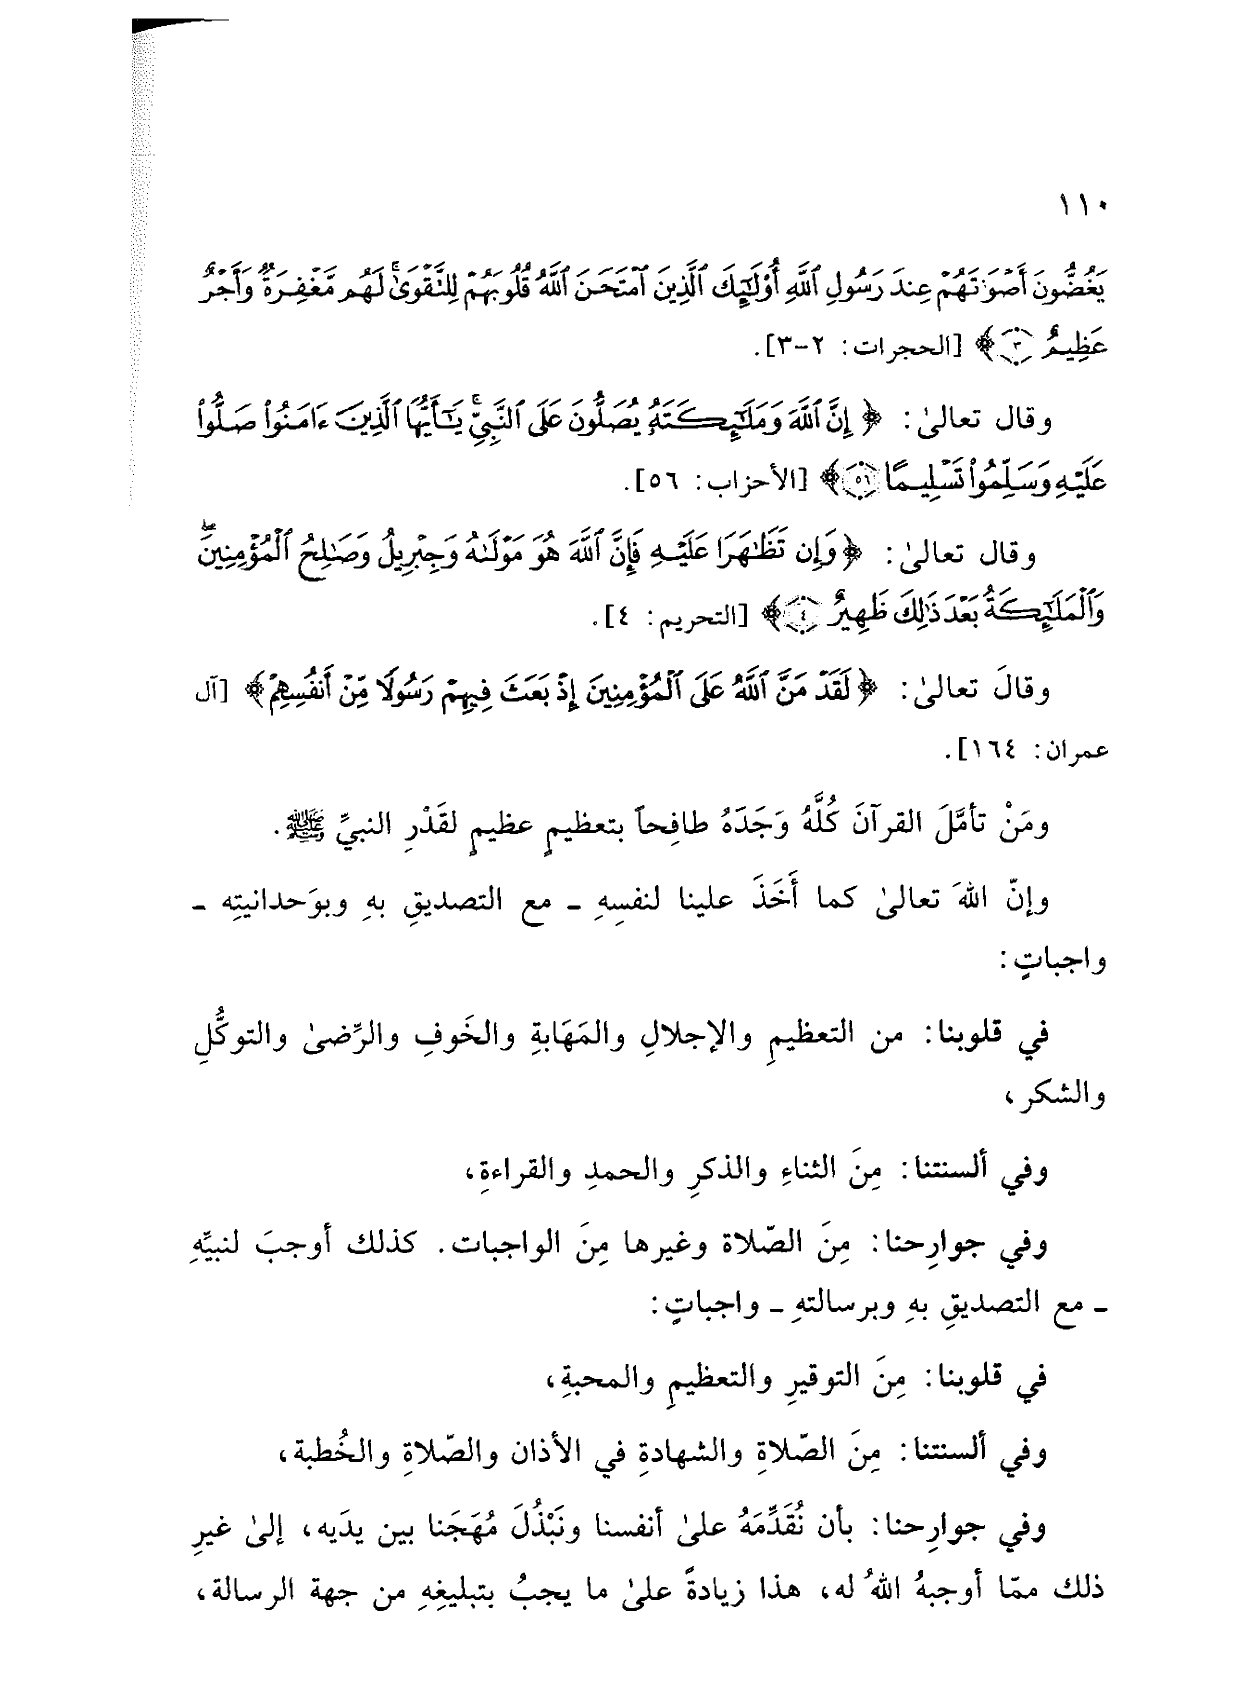 ١١٠
يَغُضُّونَ أَصْوَٰتَهُمْ عِندَ رَسُولِ ٱللَّهِ أُوْلَٰٓئِكَ ٱلَّذِينَ ٱمْتَحَنَ ٱللَّهُ قُلُوبَهُمْ لِلتَّقْوَىٰۚ لَهُم مَّغْفِرَةٌ وَأَجْرٌ
عَظِيمٌ ٣﴾ [الحجرات: ٢-٣].
وقال تعالىٰ: ﴿إِنَّ ٱللَّهَ وَمَلَٰٓئِكَتَهُۥ يُصَلُّونَ عَلَى ٱلنَّبِيِّۚ يَٰٓأَيُّهَا ٱلَّذِينَ ءَامَنُوا۟ صَلُّوا۟
عَلَيْهِ وَسَلِّمُوا۟ تَسْلِيمًا ٥٦﴾ [الأحزاب: ٥٦].
وقال تعالىٰ: ﴿وَإِن تَظَٰهَرَا عَلَيْهِ فَإِنَّ ٱللَّهَ هُوَ مَوْلَىٰهُ وَجِبْرِيلُ وَصَٰلِحُ ٱلْمُؤْمِنِينَۖ
وَٱلْمَلَٰٓئِكَةُ بَعْدَ ذَٰلِكَ ظَهِيرٌ ٤﴾ [التحريم: ٤].
وقالَ تعالىٰ: ﴿لَقَدْ مَنَّ ٱللَّهُ عَلَى ٱلْمُؤْمِنِينَ إِذْ بَعَثَ فِيهِمْ رَسُولًا مِّنْ أَنفُسِهِمْ﴾ [آل
عمران: ١٦٤].
ومَنْ تأمَّلَ القرآنَ كُلَّهُ وَجَدَهُ طافِحاً بتعظيمٍ عظيمٍ لقَدْرِ النبيِّ ﷺ.
وإنّ اللهَ تعالىٰ كما أَخَذَ علينا لنفسِهِ ـ مع التصديقِ بهِ وبوَحدانيتِه ـ
واجباتٍ:
في قلوبنا: من التعظيمِ والإجلالِ والمَهَابةِ والخَوفِ والرِّضىٰ والتوكُّلِ
والشكر،
وفي ألسنتنا: مِنَ الثناءِ والذكرِ والحمدِ والقراءةِ،
وفي جوارِحنا: مِنَ الصّلاة وغيرها مِنَ الواجبات. كذلك أوجبَ لنبيِّهِ
ـ مع التصديقِ بهِ وبرسالتهِ ـ واجباتٍ:
في قلوبنا: مِنَ التوقيرِ والتعظيمِ والمحبةِ،
وفي ألسنتنا: مِنَ الصّلاةِ والشهادةِ في الأذان والصّلاةِ والخُطبة،
وفي جوارِحنا: بأن نُقَدِّمَهُ علىٰ أنفسنا ونَبْذُلَ مُهَجَنا بين يدَيه، إلىٰ غيرِ
ذلك ممّا أوجبهُ اللهُ له، هذا زيادةً علىٰ ما يجبُ بتبليغِهِ من جهة الرسالة،